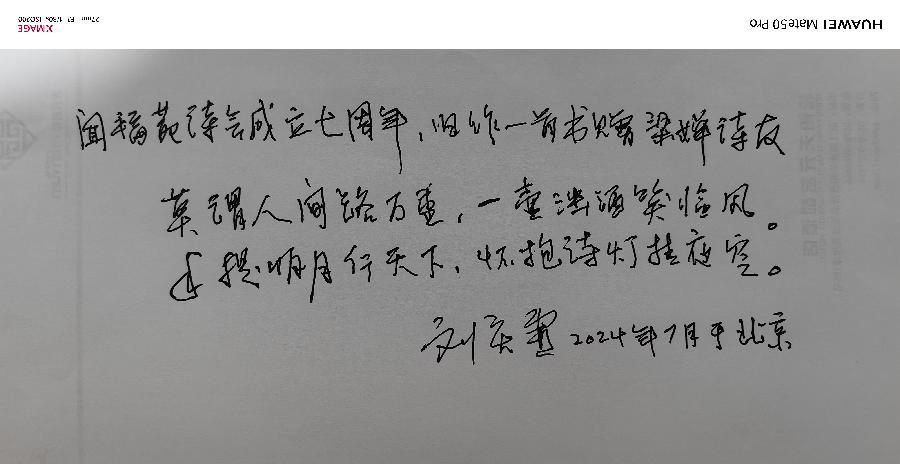 HUAWEI Mate50 Pro
XMAGE
27mm f/1.4 1/30s ISO200
闻福苑诗会成立七周年，旧作一首书赠梁婵诗友
莫谓人间路万重，一壶浊酒笑临风。
手提明月行天下，怀抱诗灯挂夜空。
刘庆霖 2024年7月于北京